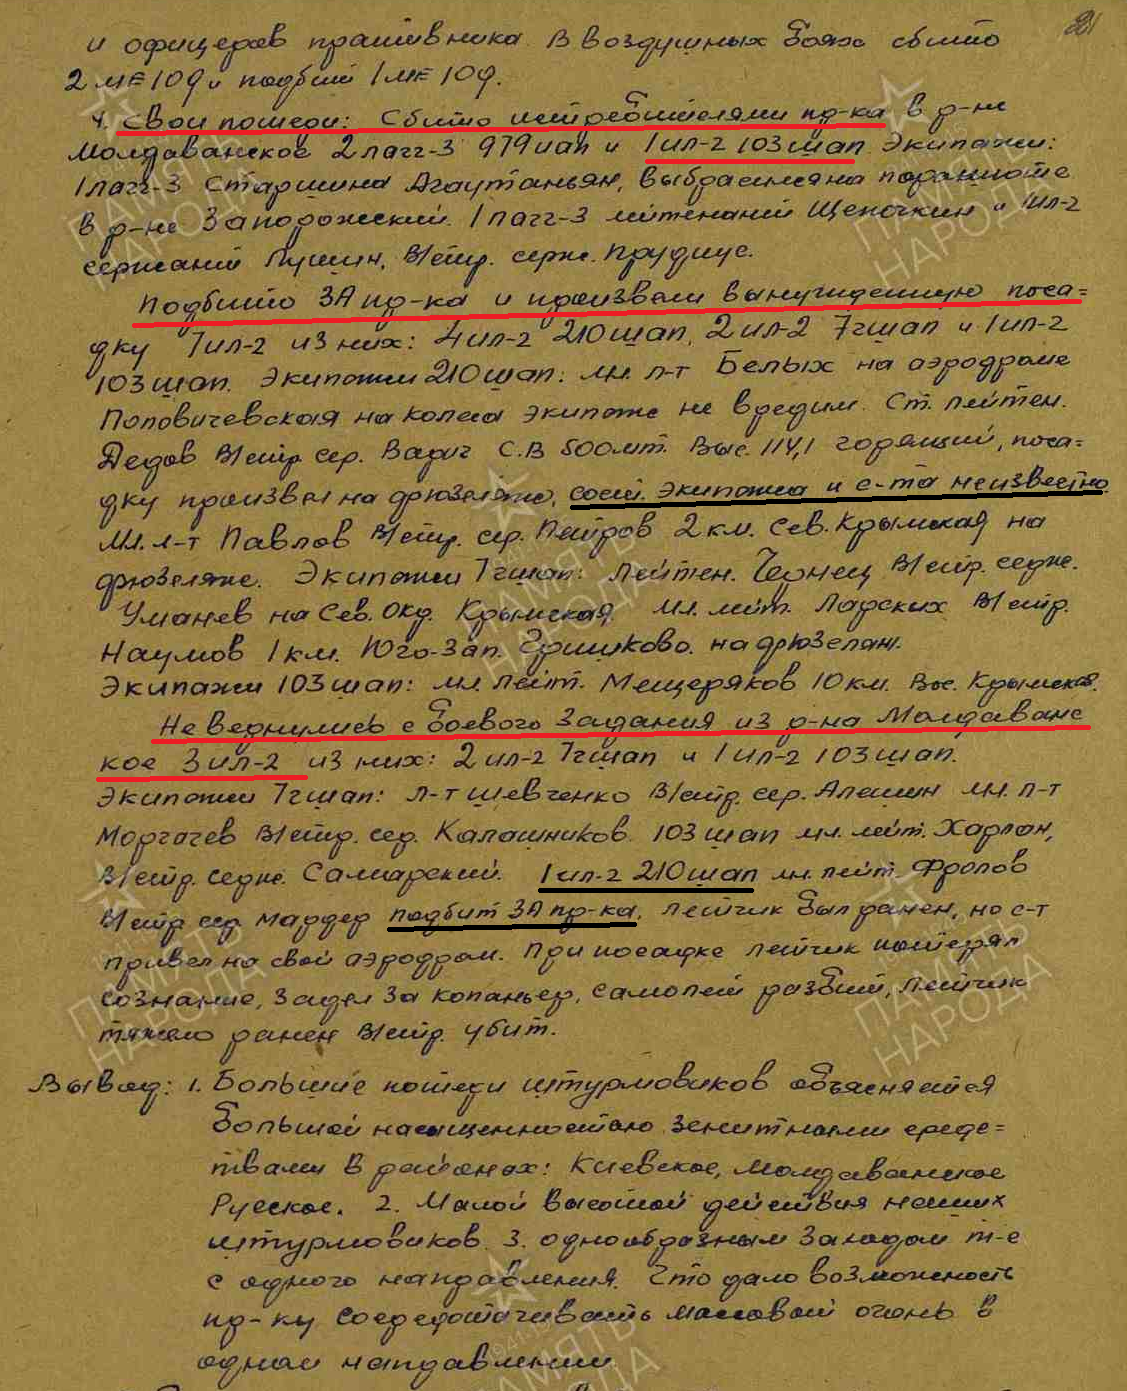 21
и офицеров противника. В воздушных боях сбито
2 МЕ 109 и подбит 1 МЕ 109.
4. Свои потери: Сбито истребителями пр-ка в р-не
Молдаванское 2 лагг-3 979 иап и 1 ил-2 103 шап. Экипажи:
1 лагг-3 Старшина Агаутаньян, выбросился на парашюте
в р-не Запорожский. 1 лагг-3 лейтенант Щепочкин и ил-2
сержант Лушин, В/стр. серж. Прудиус.
Подбито ЗА пр-ка и произвели вынужденную поса=
дку 7 ил-2 из них: 4 ил-2 210 шап, 2 ил-2 7 гшап и 1 ил-2
103 шап. Экипажи 210 шап: мл. л-т Белых на аэродроме
Поповичевская на колеса экипаж не вредим. Ст. лейтен.
Дедов В/стр. сер. Варич С.В 500 мт. Выс. 114,1 горящий, поса=
дку произвел на фюзеляж, сост. экипажа и с-та неизвестно.
Мл. л-т Павлов В/стр. сер. Петров 2 км. Сев. Крымская на
фюзеляже. Экипажи 7 гшап: Лейтен. Чернец В/стр. серж.
Уманев на Сев. Окр. Крымская. Мл. лейт. Ларских В/стр.
Наумов 1 км. Юго-Зап. Гришково. на фюзеляж.
Экипажи 103 шап: мл. лейт. Мещеряков 10 км. Вос. Крымская.
Не вернулись с боевого задания из р-на Молдаванс
кое 3 ил-2 из них: 2 ил-2 7 гшап и 1 ил-2 103 шап.
Экипажи 7 гшап: л-т Шевченко В/стр. сер. Алешин мл. л-т
Моргачев В/стр. сер. Калашников. 103 шап мл. лейт. Харлан,
В/стр. серж. Самарский. 1 ил-2 210 шап мл. лейт. Фролов
В/стр сер. Мардер подбит ЗА пр-ка. Летчик был ранен, но с-т
привел на свой аэродром. При посадке летчик потерял
сознание, задел за копаньер, самолет разбит, летчик
тяжело ранен В/стр. убит.
Вывод: 1. Большие потери штурмовиков объясняется
большой насыщенностью зенитными средс=
твами в районах: Киевское, Молдаванское
Русское. 2. Малой высотой действия наших
штурмовиков. 3. однообразным заходом т-е
с одного направления. Что дало возможность
пр-ку сосредотачивать массовой огонь в
одном направлении.
ПАМЯТЬ НАРОДА